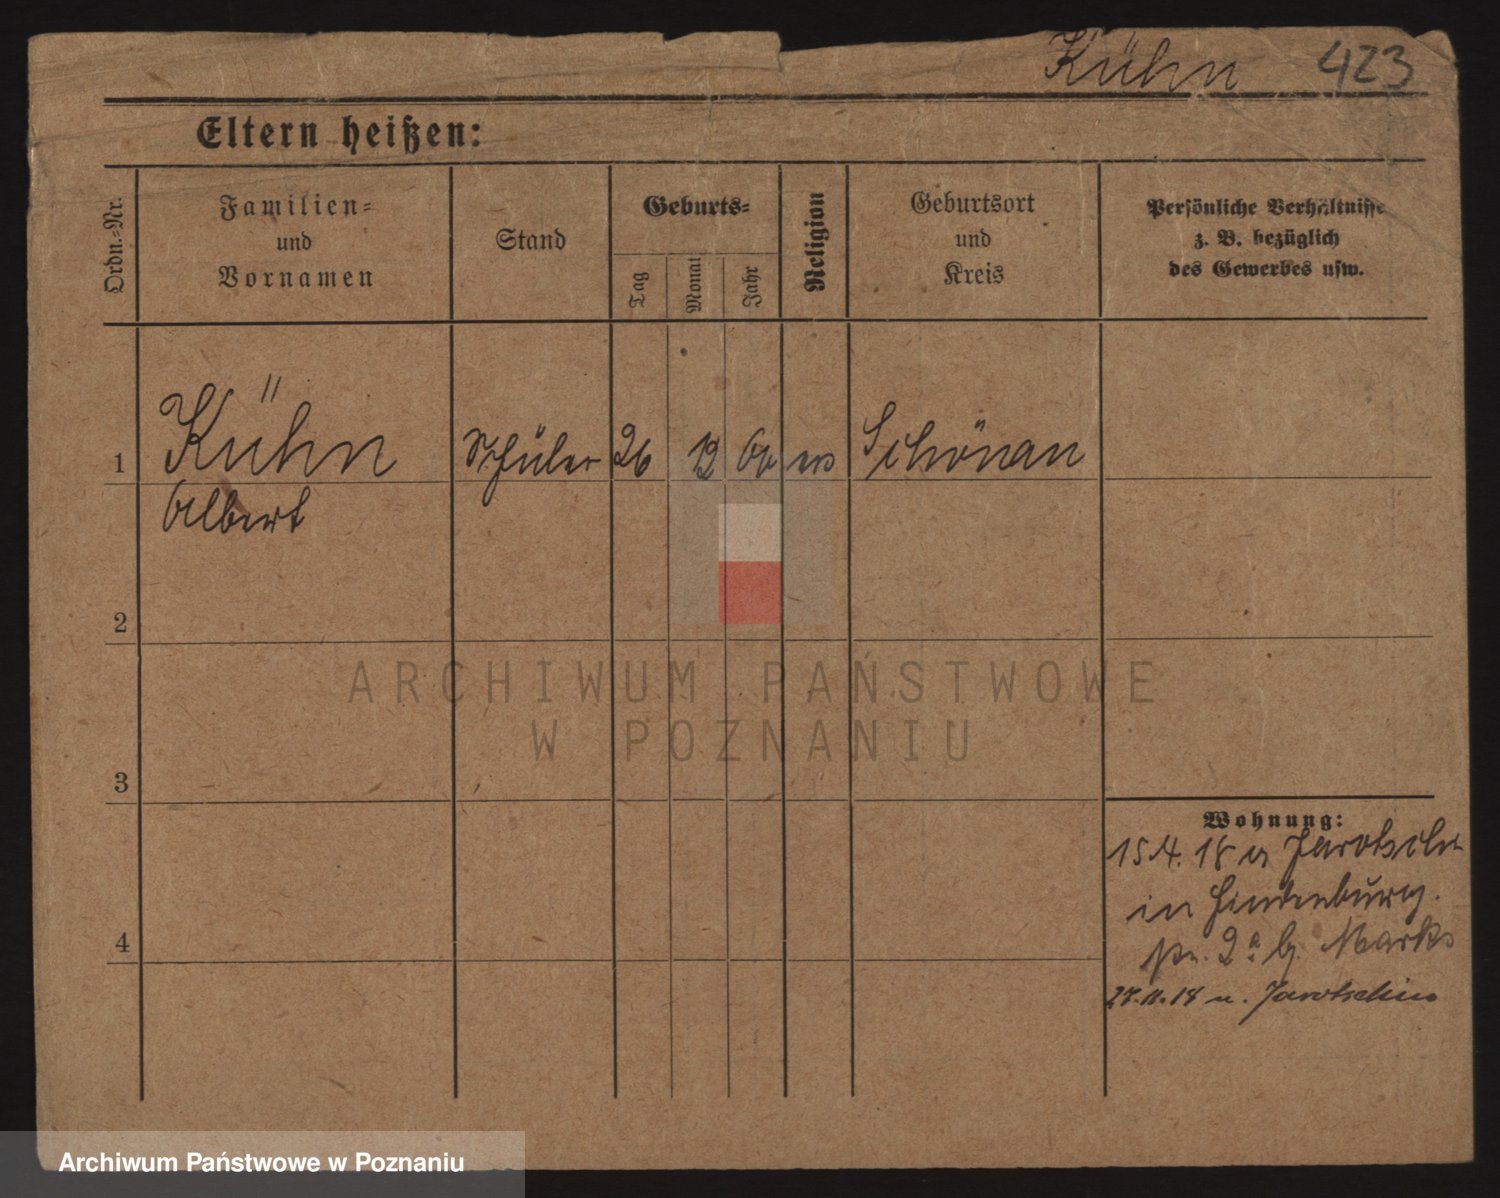 Kühn 423
Eltern heißen:
Ordn.-Nr.
Familien-
und
Vornamen
Stand
Geburts-
Tag
Monat
Jahr
Religion
Geburtsort
und
Kreis
Persönliche Verhältnisse
z. B. bezüglich
des Gewerbes usw.
1
Kühn Schüler 26 12 Schönau
Albert
2
3
4
Wohnung:
15.4.18 Jarotschin
in
Marks
27.11.18 n. Jarotschin
ARCHIWUM PAŃSTWOWE
W POZNANIU
Archiwum Państwowe w Poznaniu